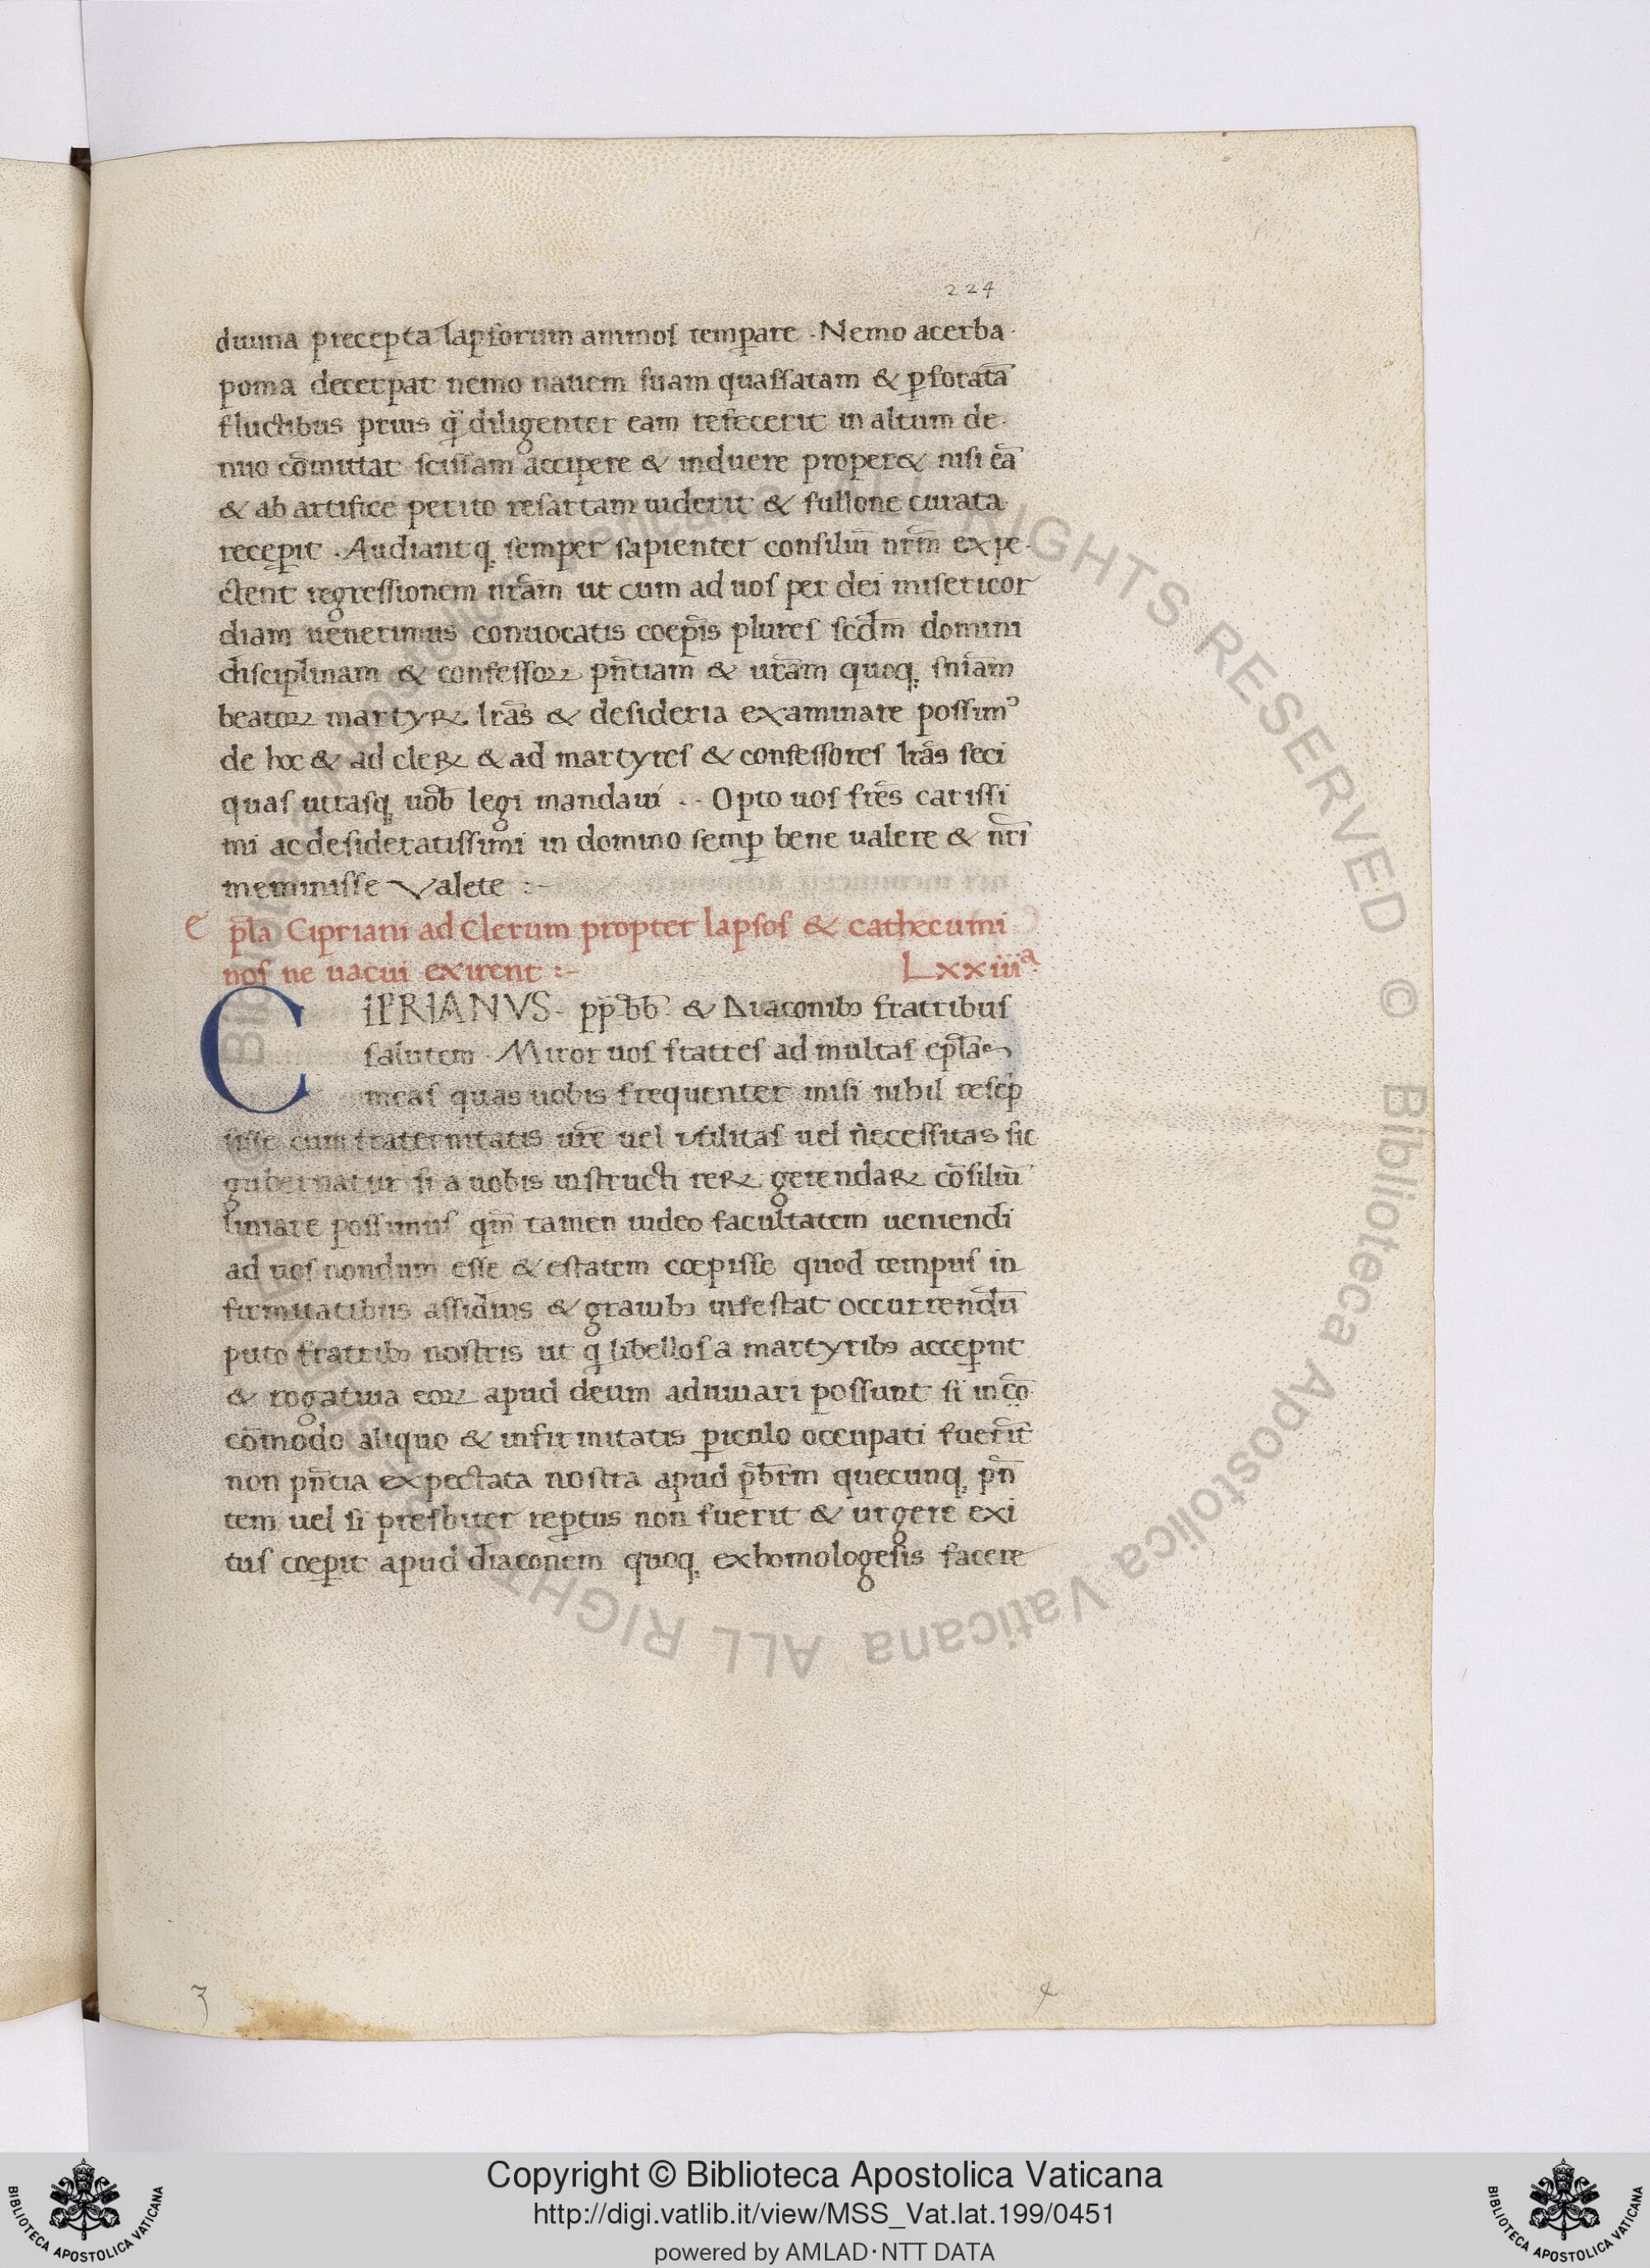 224
diuina precepta lapsorum animos temꝑare · Nemo acerba
poma decerpat nemo nauem suam quassatam & ꝑforatā
fluctibus prius q̄ diligenter eam refecerit in altum de
nuo cōmittat scissam accipere & induere proper& nisi eā
& ab artifice perito resartam uiderit & fullone curata
receꝑit · Audiant q, semper sapienter consiliū nr̄m expe
ctent regressionem nr̄am ut cum ad uos per dei misericor
diam uenerimus conuocatis coep̄is plures scd̄m domini
disciplinam & confessoꝝ pn̄tiam & ur̄am quoq, sn̄iam
beatoꝝ martyꝝ lr̄as & desideria examinare possimꝰ
de hoc & ad cleꝝ & ad martyres & confessores lr̄as feci
quas utrasq, uob̄ legi mandaui · · Opto uos fr̄es carissi
mi ac desideratissimi in domino semꝑ bene ualere & nr̄i
meminisse Valete :-
e pl̄a Cipriani ad Clerum propter lapsos & cathecumi
nos ne uacui exirent :- Lxxiiiiª
CIPRIANVS · pp̄bb̄ & Diaconibꝫ frattribus
salutem · Miror uos frattes ad multas epl̄as
meas quas uobis frequenter misi nihil rescꝑ
sisse cum fraternitatis ur̄e uel utilitas uel necessitas sic
gubernatur si a uobis instructi reꝝ gerendaꝝ cōsiliū
limare possimus qm̄ tamen uideo facultatem ueniendi
ad uos nondum esse & estatem cœpisse quod tempus in
firmitatibus assiduis & grauibꝫ infestat occurrendū
puto frattribꝫ nostris ut q̄ libellos a martyribꝫ acceꝑnt
& rogatiua eoꝝ apud deum adiuuari possunt si in cō
cōmodo aliquo & infirmitatis ꝑiculo occupati fuer̄it
non pn̄tia expectata nostra apud pb̄r̄m quecunq, pn̄
tem uel si presbiter reꝑtus non fuerit & urgere exi
tus cœꝑit apud diaconem quoq, exhomologesis facere
3 4
Copyright © Biblioteca Apostolica Vaticana
http://digi.vatlib.it/view/MSS_Vat.lat.199/0451
powered by AMLAD·NTT DATA
BIBLIOTECA APOSTOLICA VATICANA
BIBLIOTECA APOSTOLICA VATICANA
© Biblioteca Apostolica Vaticana ALL RIGHTS RESERVED © Biblioteca Apostolica Vaticana ALL RIGHTS RESERVED